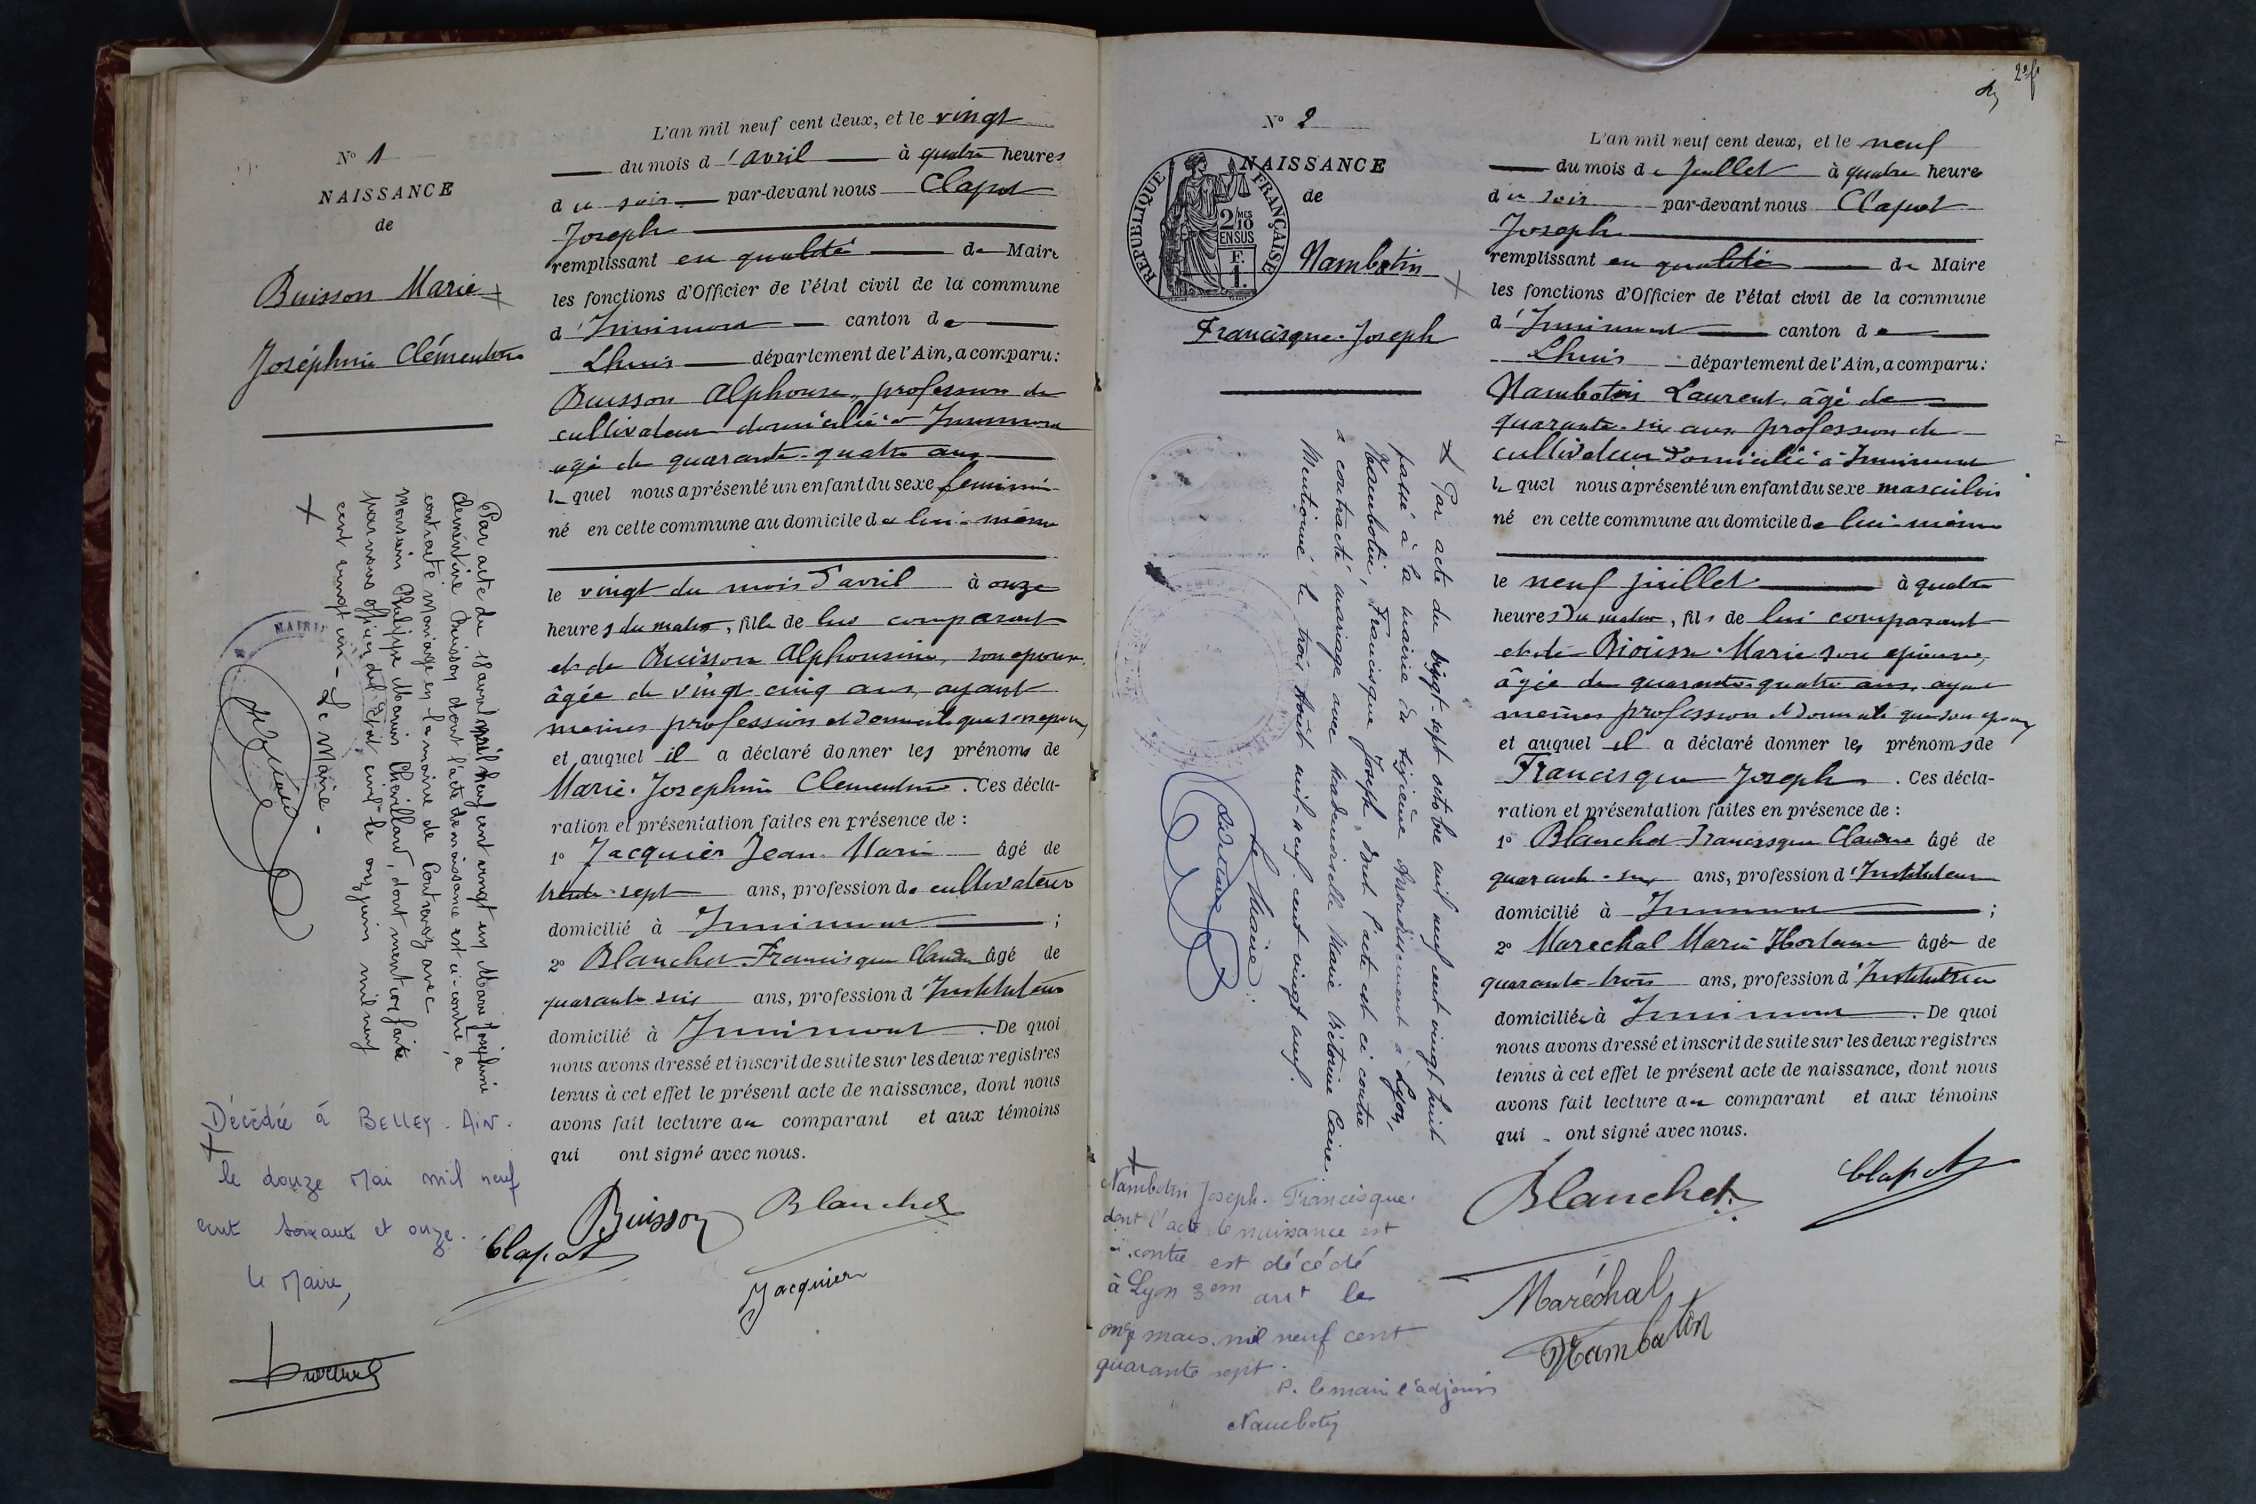 N° 1
NAISSANCE
de
Buisson Marie
Joséphine Clémentine
L'an mil neuf cent deux, et le vingt
du mois d'avril à quatre heures
du soir par-devant nous Clapot
Joseph
remplissant en qualité de Maire
les fonctions d'Officier de l'état civil de la commune
d'Innimont canton de
Lhuis département de l'Ain, a comparu:
Buisson Alphonse, profession de
cultivateur domicilié à Innimont
agé de quarante-quatre ans
lequel nous a présenté un enfant du sexe feminin
né en cette commune au domicile de lui-même
le vingt du mois d'avril à onze
heures du matin, fille de lui comparant
et de Buisson Alphonsine, son epouse,
âgée de vingt cinq ans, ayant
memes profession et domicile que son epoux
et auquel il a déclaré donner les prénoms de
Marie Josephine Clementine. Ces décla-
ration et présentation faites en présence de :
1° Jacquier Jean Marie âgé de
trente-sept ans, profession de cultivateur
domicilié à Innimont ;
2° Blanchet Francisque Claude âgé de
quarante six ans, profession d'Instituteur
domicilié à Innimont. De quoi
nous avons dressé et inscrit de suite sur les deux registres
tenus à cet effet le présent acte de naissance, dont nous
avons fait lecture au comparant et aux témoins
qui ont signé avec nous.
Buisson Blanchet
Clapot
Jacquier
Par acte du 18 avril mil neuf cent vingt un Marie Joséphine
Clémentine Buisson dont l'acte de naissance est ci-contre, a
contracté mariage en la mairie de Contrevoz avec
Monsieur Philippe Marius Chevilland, dont mention faite
par nous officier de l'Etat civil le onze juin mil neuf
cent vingt un - Le Maire -
MAIRIE
Décédée à BELLEY. AIN.
le douze Mai mil neuf
cent soixante et onze.
Le Maire,
2e f
N° 2
NAISSANCE
de
REPUBLIQUE FRANÇAISE
2/10 MES
EN SUS
F.
1.
Nambotin
Francisque-Joseph
L'an mil neuf cent deux, et le neuf
du mois de Juillet à quatre heures
du soir par-devant nous Clapot
Joseph
remplissant en qualité de Maire
les fonctions d'Officier de l'état civil de la commune
d'Innimont canton de
Lhuis département de l'Ain, a comparu:
Nambotin Laurent âgé de
quarante-six ans profession de
cultivateur domicilié à Innimont
lequel nous a présenté un enfant du sexe masculin
né en cette commune au domicile de lui-même
le neuf juillet à quatre
heures du matin, fils de lui comparant
et de Marie son epouse,
âgée de quarante-quatre ans, ayant
memes profession et domicile que son epoux
et auquel il a déclaré donner les prénoms de
Francisque Joseph. Ces décla-
ration et présentation faites en présence de :
1° Blanchet Francisque Claude âgé de
quarante-six ans, profession d'Instituteur
domicilié à Innimont ;
2° Marechal Marie Hortense âgée de
quarante-trois ans, profession d'Institutrice
domiciliée à Innimont. De quoi
nous avons dressé et inscrit de suite sur les deux registres
tenus à cet effet le présent acte de naissance, dont nous
avons fait lecture au comparant et aux témoins
qui ont signé avec nous.
Blanchet Clapot
Maréchal
Nambotin
Par acte du vingt-sept octobre mil neuf cent vingt huit
passé à la mairie du sixième Arrondissement à Lyon,
Nambotin, Francisque Joseph, dont l'acte est ci contre
a contracté mariage avec Mademoiselle Marie Caire
Mentionné le trois Août mil-neuf-cent-vingt neuf.
Le Maire:
Nambotin Joseph. Francisque.
dont l'acte de naissance est
ci. contre est décédé
à Lyon 3em arrt le
onze mars. mil neuf cent
quarante sept.
P. le maire l'adjoint
Nambotin